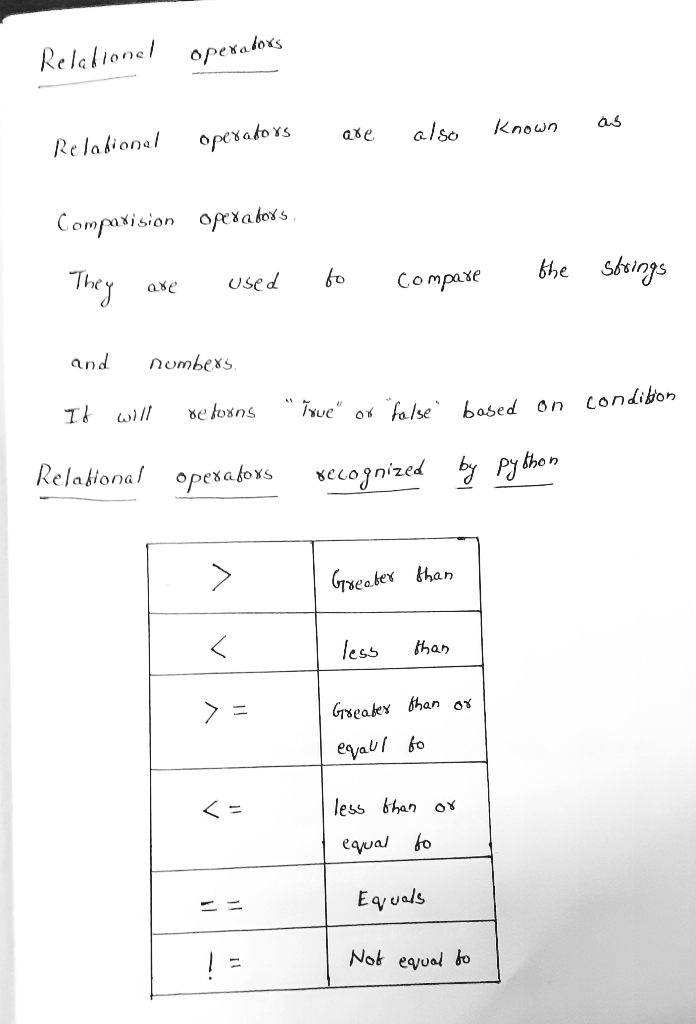 Relational operators
Relational operators are also known as
Comparision operators.
They are used to compare the strings
and numbers.
It will returns "True" or "false" based on condition
Relational operators recognized by python
> Greater than
< less than
> = Greater than or
equaul to
< = less than or
equal to
= = Equals
! = Not equal to